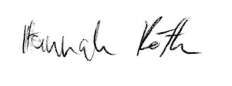 Hannah Röth